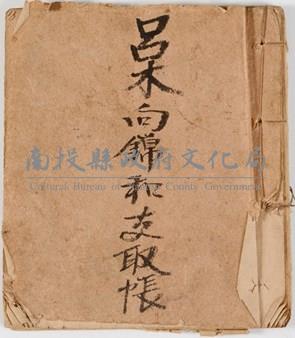 呂木向錦和支取帳
南投縣政府文化局
Cultural Bureau of Nantou County Government